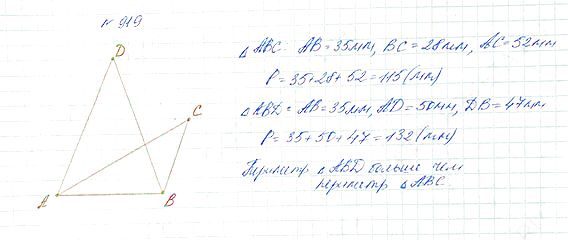 № 919
D
C
A
B
△ ABC. AB = 35мм, BC = 28мм, AC = 52мм
P = 35 + 28 + 52 = 115 (мм)
△ ABD = AB = 35мм, AD = 50мм, DB = 47мм
P = 35 + 50 + 47 = 132 (мм)
Периметр △ ABD больше чем
периметр △ ABC.